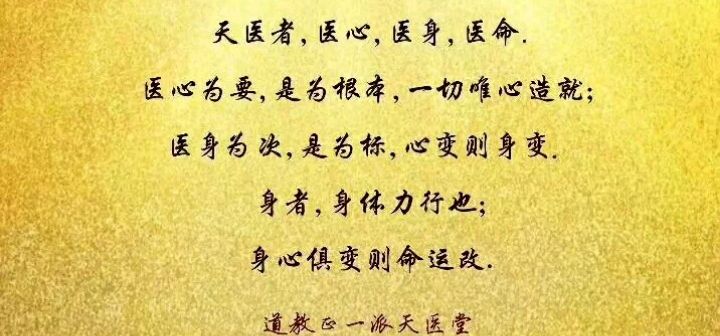 天医者,医心,医身,医命.
医心为要,是为根本,一切唯心造就;
医身为次,是为标,心变则身变.
身者,身体力行也;
身心俱变则命运改.
道教正一派天医堂